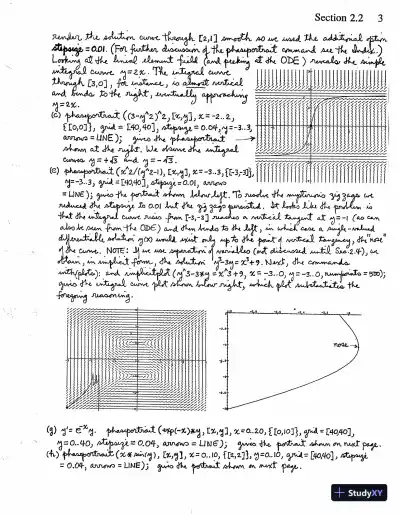 Section 2.2 3
render the solution curve through [2,1] smooth so we used the additional option
stepsize = 0.01. (For further discussion of the phaseportrait command see the Index.)
Looking at the lineal element field (and peeking at the ODE) reveals the simple
integral curve y=2x. The integral curve
through [3,0], for instance, is almost vertical
and bends to the right, eventually approaching
y=2x.
(c) phaseportrait((3-y^2)^2, [x,y], x=-2..2,
{[0,0]}, grid=[40,40], stepsize=0.04, y=-3..3,
arrows=LINE); gives the phaseportrait
shown at the right. We observe the integral
curves y=+√3 and y=-√3.
(e) phaseportrait(x^2/(y^2-1), [x,y], x=-3..3, {[-3,-3]},
y=-3..3, grid=[40,40], stepsize=0.01, arrows
=LINE); gives the portrait shown below left. To resolve the mysterious zig zags we
reduced the stepsize to 0.01 but the zig zags persisted. It looks like the problem is
that the integral curve rises from [-3,-3] reaches a vertical tangent at y=-1 (as can
also be seen from the ODE) and then bends to the left, in which case a single-valued
differentiable solution y(x) would exist only up to the point of vertical tangency, the "nose"
of the curve. NOTE: If we use separation of variables (not discussed until Sec. 2.4), we
obtain, in implicit form, the solution y³-3y=x³+9. Next, the commands
with(plots): and implicitplot(y^3-3*y=x^3+9, x=-3..0, y=-3..0, numpoints=500);
gives the integral curve plot shown below right, which plot substantiates the
foregoing reasoning.
nose
(g) y'=e⁻ˣy. phaseportrait(exp(-x)*y, [x,y], x=0..20, {[0,10]}, grid=[40,40],
y=0..40, stepsize=0.04, arrows=LINE); gives the portrait shown on next page.
(h) phaseportrait(x*sin(y), [x,y], x=0..10, {[2,2]}, y=0..10, grid=[40,40], stepsize
=0.04, arrows=LINE); gives the portrait shown on next page.
StudyXY